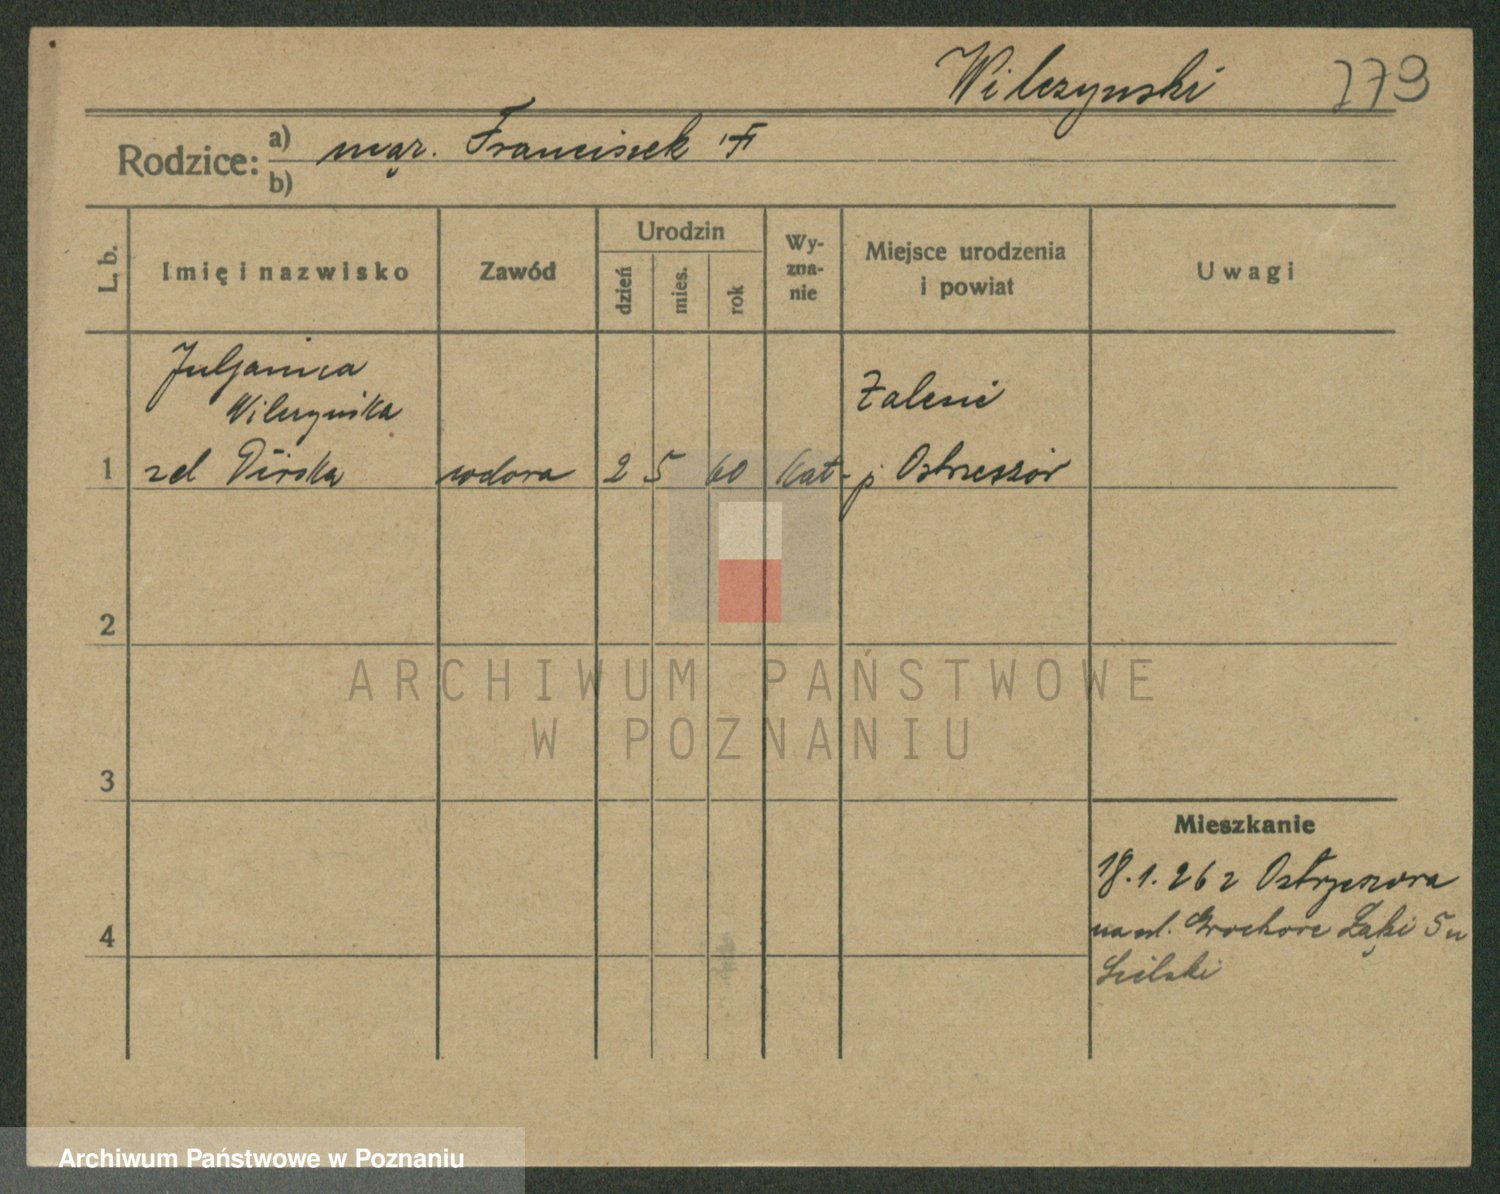 Wilczynski 279
Rodzice: a) mąż. Franciszek
b)
L. b. Imię i nazwisko Zawód Urodzin dzień mies. rok Wyznanie Miejsce urodzenia i powiat Uwagi
Wilczynska Zalesie
1 wdowa 2 5 60 kat. p. Ostrzeszów
2
3
4
Mieszkanie
18.1.26 z Ostrzeszowa
na ul. Grochowe Łąki 5 u
ARCHIWUM PAŃSTWOWE
W POZNANIU
Archiwum Państwowe w Poznaniu